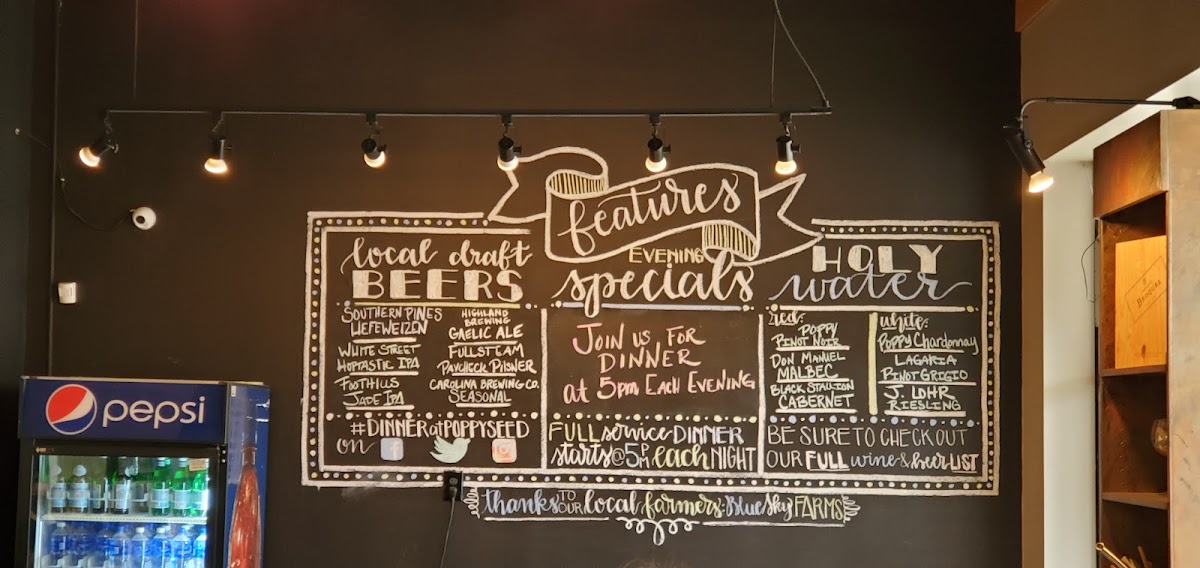 features
local draft
BEERS
SOUTHERN PINES
HEFEWEIZEN
WHITE STREET
HOPTASTIC IPA
FOOTHILLS
JADE IPA
HIGHLAND
BREWING
GAELIC ALE
FULLSTEAM
PAYCHECK PILSNER
CAROLINA BREWING CO.
SEASONAL
#DINNER at POPPYSEED
on
EVENING
specials
JOIN US, FOR
DINNER
at 5pm EACH EVENING
FULL service DINNER
starts @ 5PM each NIGHT
HOLY
water
red:
POPPY
PINOT NOIR
DON MANUEL
MALBEC
BLACK STALLION
CABERNET
white:
POPPY CHARDONNAY
LAGARIA
PINOT GRIGIO
J. LOHR
RIESLING
BE SURE TO CHECK OUT
OUR FULL wine & beer LIST
thanks TO OUR local farmers: Blue Sky FARMS
pepsi